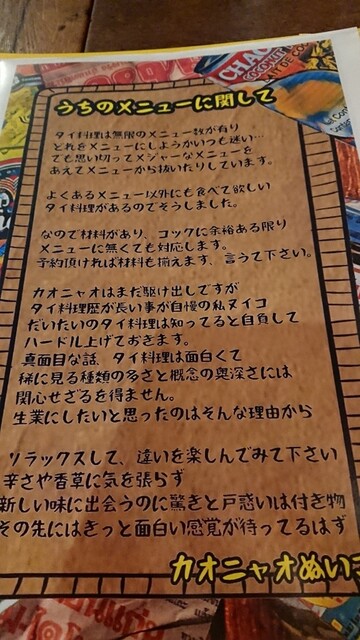 CHAO
COCONUT
うちのメニューに関して
タイ料理は無限のメニュー数が有り
どれをメニューにしようかいつも迷い…
ても思い切ってメジャーなメニューを
あえてメニューから抜いたりしています。
よくあるメニュー以外にも食べて欲しい
タイ料理があるのでそうしました。
なので材料があり、コックに余裕ある限り
メニューに無くても対応します。
予約頂ければ材料も揃えます、言うて下さい。
カオニャオはまだ駆け出しですが
タイ料理歴が長い事が自慢の私ヌイコ
だいたいのタイ料理は知ってると自負して
ハードル上げておきます。
真面目な話、タイ料理は面白くて
稀に見る種類の多さと概念の奥深さには
関心せざるを得ません。
生業にしたいと思ったのはそんな理由から
リラックスして、違いを楽しんでみて下さい
辛さや香草に気を張らず
新しい味に出会うのに驚きと戸惑いは付き物
その先にはきっと面白い感覚が待ってるはず
カオニャオぬい